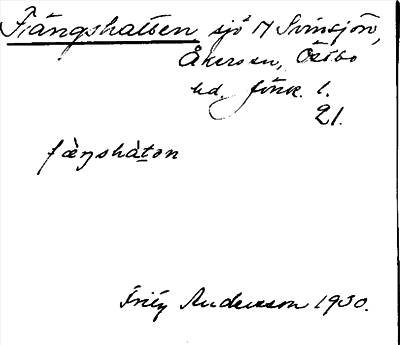 Fängshatten sjö N Svinsjön,
Åkers sn, Östbo
hd, Jönk. l.
21.
fæ̀ŋshàt̲ən
Friży Andersson 1930.